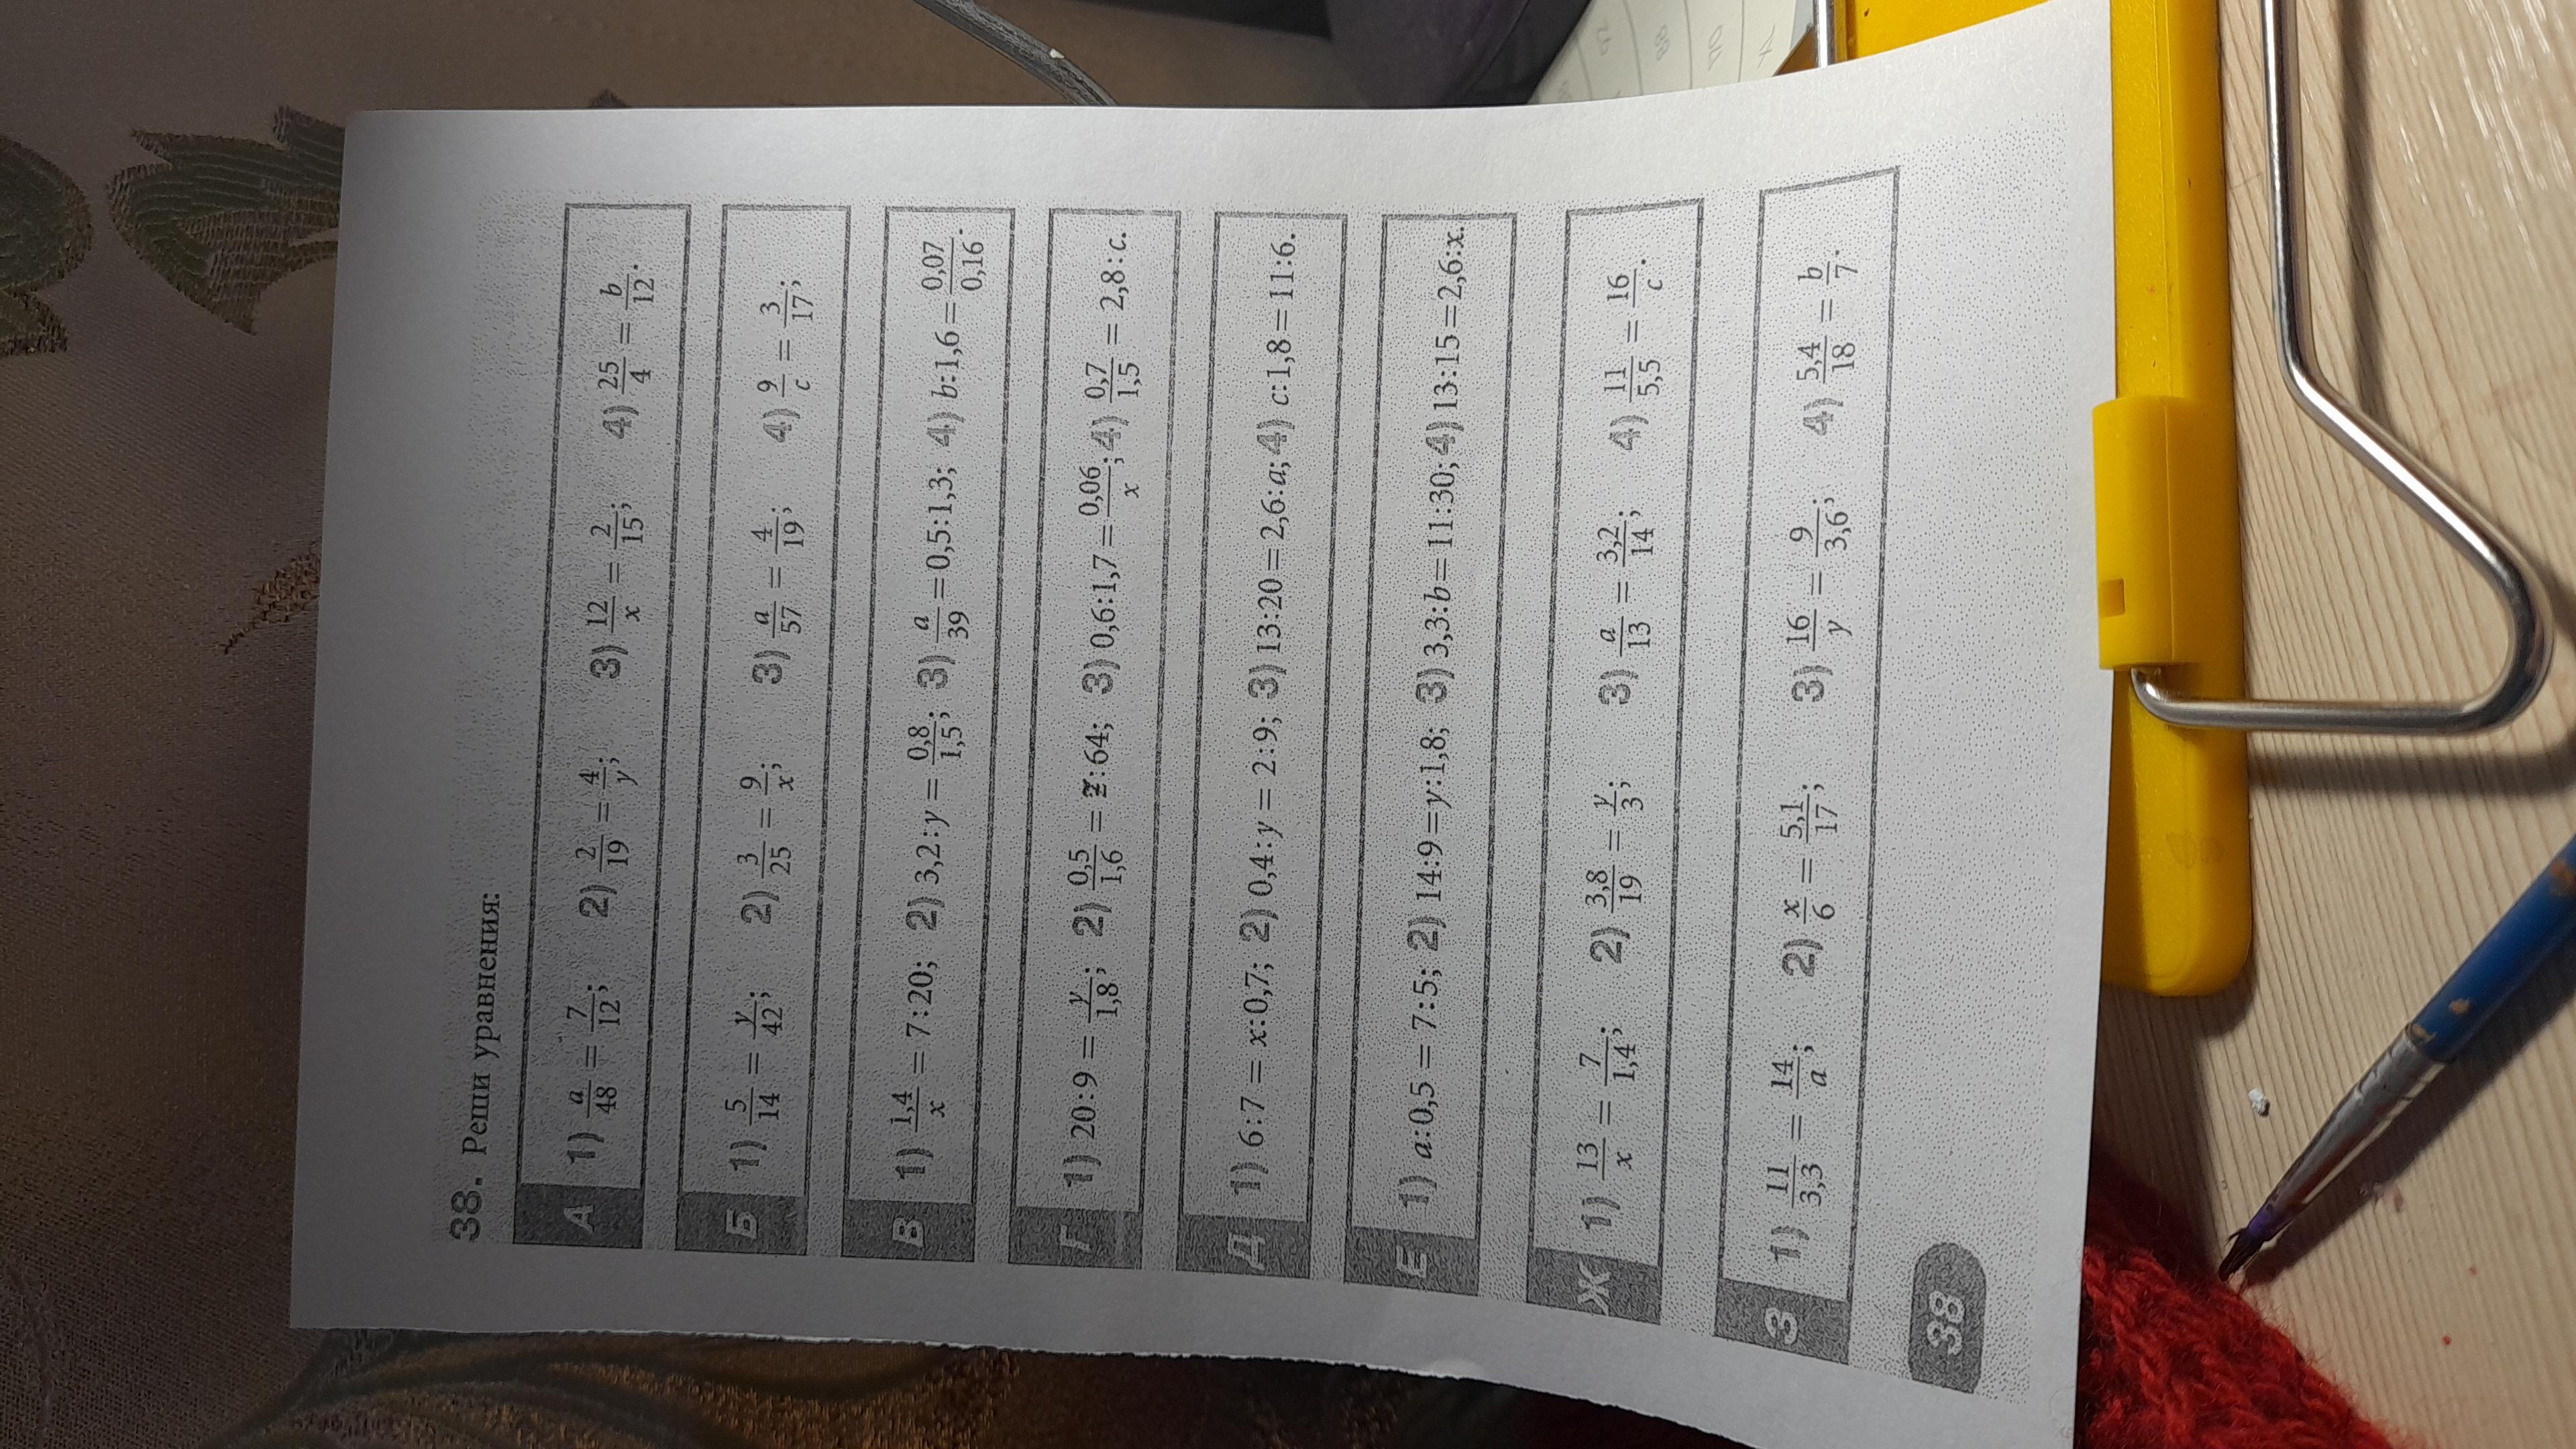 38. Реши уравнения:
А 1) a/48 = 7/12; 2) 2/19 = 4/y; 3) 12/x = 2/15; 4) 25/4 = b/12.
Б 1) 5/14 = y/42; 2) 3/25 = 9/x; 3) a/57 = 4/19; 4) 9/c = 3/17;
В 1) 1,4/x = 7:20; 2) 3,2:y = 0,8/1,5; 3) a/39 = 0,5:1,3; 4) b:1,6 = 0,07/0,16.
Г 1) 20:9 = y/1,8; 2) 0,5/1,6 = z:64; 3) 0,6:1,7 = 0,06/x; 4) 0,7/1,5 = 2,8:c.
Д 1) 6:7 = x:0,7; 2) 0,4:y = 2:9; 3) 13:20 = 2,6:a; 4) c:1,8 = 11:6.
Е 1) a:0,5 = 7:5; 2) 14:9 = y:1,8; 3) 3,3:b = 11:30; 4) 13:15 = 2,6:x.
Ж 1) 13/x = 7/1,4; 2) 3,8/19 = y/3; 3) a/13 = 3,2/14; 4) 11/5,5 = 16/c.
З 1) 11/3,3 = 14/a; 2) x/6 = 5,1/17; 3) 16/y = 9/3,6; 4) 5,4/18 = b/7.
38